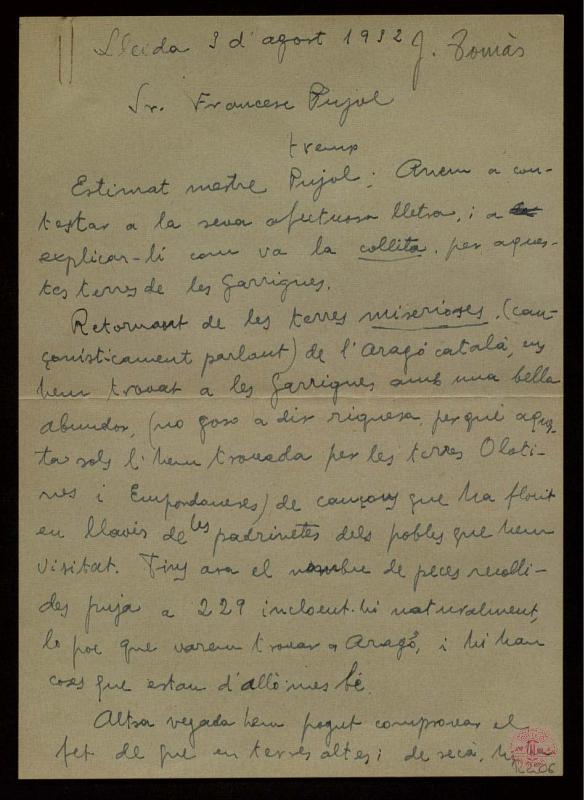 Lleida 3 d'agost 1932 J. Tomàs
Sr. Francesc Pujol
tremp
Estimat mestre Pujol: Anem a con-
testar a la seva afectuosa lletra, i a
explicar-li com va la collita per aques-
tes terres de les Garrigues.
Retornant de les terres miserioses, (can-
çonisticament parlant) de l'Aragó català, ens
hem trovat a les Garrigues amb una bella
abundor, (no goso a dir riquesa perquè aques-
ta sols l'hem trovada per les terres Oloti-
nes i Empordaneses) de cançons que ha florit
en llavis de les padrinetes dels pobles que hem
visitat. Fins ara el nombre de peces recolli-
des puja a 229 incloent-hi naturalment,
lo poc que varem trovar a Aragó, i hi han
coses que estan d'allò mes bé.
Altra vegada hem pogut comprovar el
fet de que en terres altes i de secà,